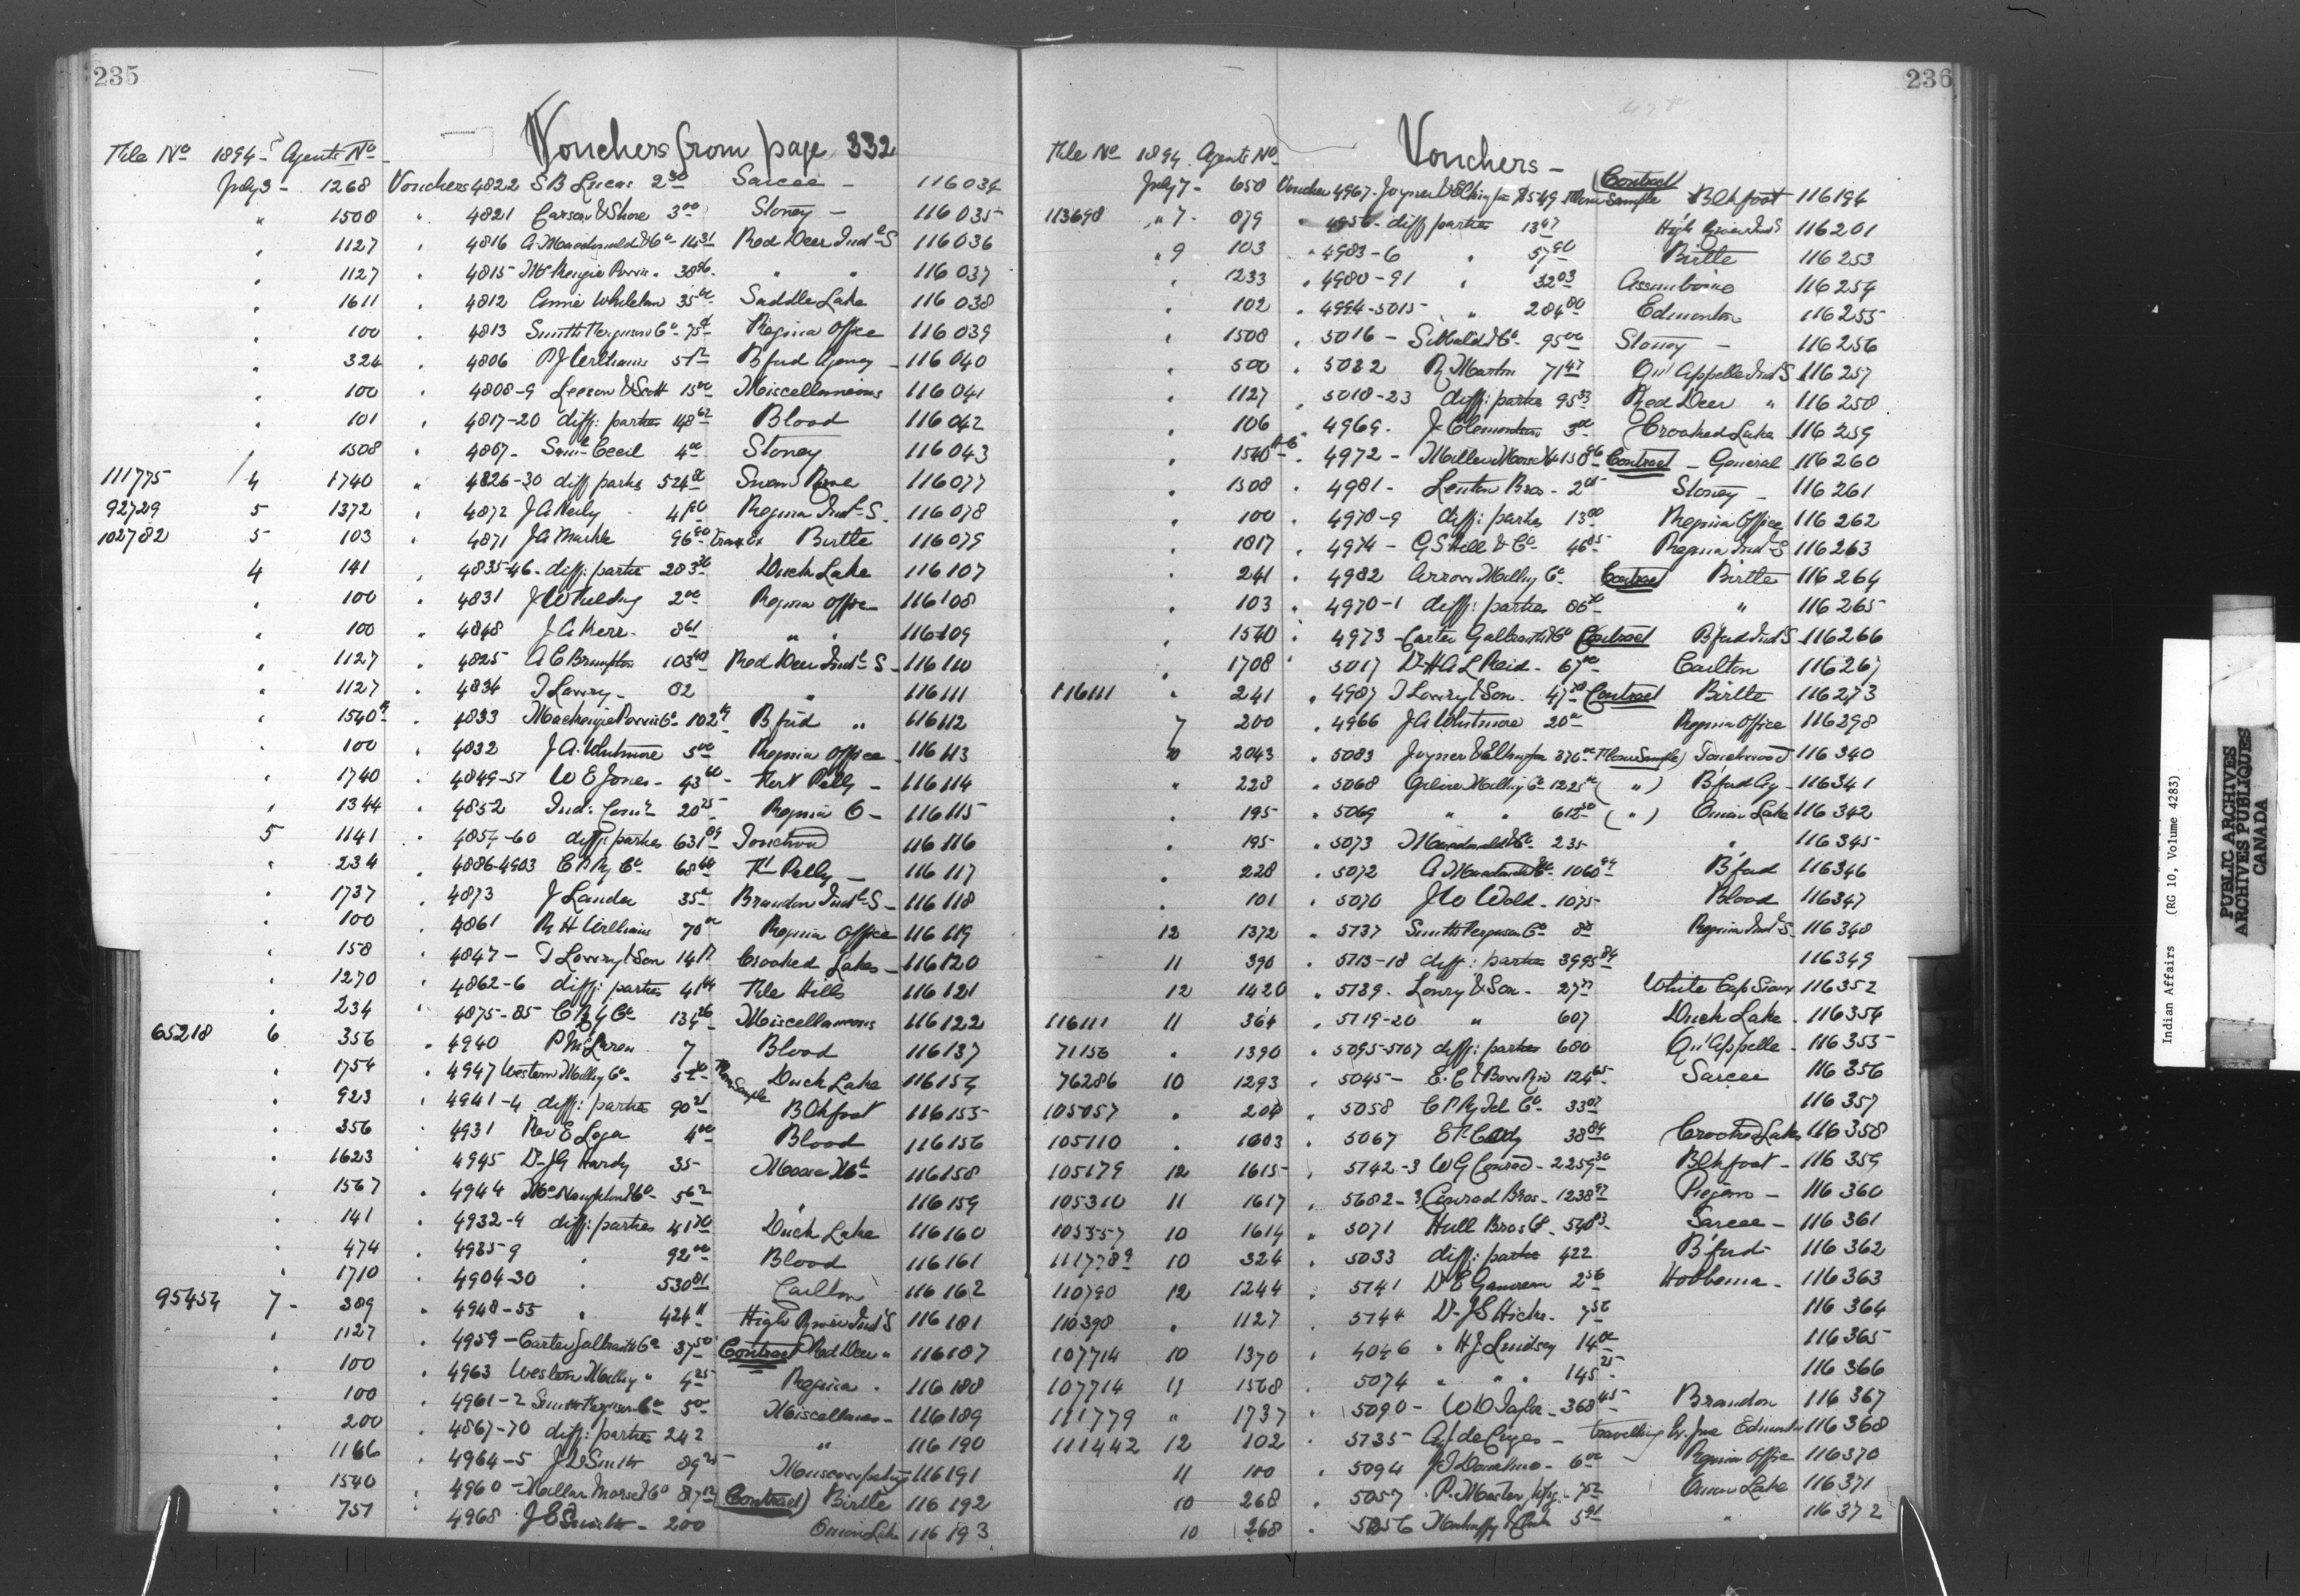 235
Vouchers from page 332
File No 1894 Agents No
July 3 - 1268 Vouchers 4822 S B Lucas 2 50 Sarcee - 116034
" 1508 " 4821 Carson & Shore 3 00 Stoney - 116035
" 1127 " 4816 A. Macdonald & Co - 14 31 Red Deer Indl S 116036
" 1127 " 4815 McKenzie 38 86 " " 116037
" 1611 " 4812 Annie Whitelaw 35 00 Saddle Lake 116038
" 100 4813 Smith & Ferguson Co - 75 Regina Office 116039
" 324 4806 P J Williams 5 Bfud Agency - 116040
" 100 4808-9 Leeson & Scott 15 00 Miscellaneous 116041
" 101 4817-20 diff: parties 148 62 Blood 116042
" 1508 4867 - Saml Cecil 4 00 Stoney 116043
111775 4 1740 " 4826-30 diff parties 524 Swan River 116077
92729 5 1372 " 4872 J A Neily Regina Indl S. 116078
102782 5 103 " 4871 J A Markle 96 90 Trav Ex Birtle 116079
4 141 " 4835-46 - diff: parties 283 36 Duck Lake 116107
" 100 " 4831 J W Fielding 2 00 Regina Office 116108
" 100 " 4848 J A Kerr - 8 61 " " 116109
" 1127 " 4825 A C Brumpton 103 Red Deer Indl S - 116110
" 1127 " 4834 T Lowry - 82 " 116111
" 1540 " 4833 Mackenzie Co - 102 Bfud " 116112
" 100 " 4832 J. A. Whitmore 5 00 Regina Office - 116113
" 1740 " 4849-51 W E Jones - 43 Fort Pelly - 116114
" 1344 " 4852 Ind: Comr 20 25 Regina O - 116115
5 1141 " 4854-60 diff: parties 631 09 Touchwood 116116
" 234 4886-4903 C P Ry Co 68 Ft Pelly - 116117
" 1737 " 4873 J Lander 35 Brandon Indl S - 116118
" 100 4861 R H Williams 70 00 Regina Office 116119
" 158 " 4847 - T Lowry & Son 14 Crooked Lakes - 116120
" 1270 4862-6 diff: parties 41 File Hills 116121
" 234 " 4875-85 C P Ry Co 134 26 Miscellaneous 116122
65218 6 356 " 4940 P McLaren 7 Blood 116137
" 1754 " 4947 Western Milling Co - 5 Flour Sample Duck Lake 116154
" 923 " 4941-4 diff: parties 90 21 Blkfoot 116155
" 356 4931 Rev E 4 00 Blood 116156
" 1623 " 4945 Dr J G Hardy 35 - Moose Mt 116158
" 1567 " 4944 McNaughton & Co - 5 62 " 116159
" 141 " 4932-4 diff: parties 41 70 Duck Lake 116160
" 474 " 4935-9 " 92 00 Blood 116161
" 1710 " 4904-30 " 530 81 Carlton 116162
95454 7 - 389 " 4948-55 " 424 11 High River Indl S 116181
" 1127 " 4959 - Carter Galbraith & Co 37 50 Contract Red Deer " 116187
" 100 " 4963 Western Milling " 4 25 Regina " 116188
" 100 " 4961-2 Smith Ferguson Co 5 00 Miscellaneous - 116189
" 200 4867-70 diff: parties 242 " 116190
" 1166 " 4964-5 J D Smith 89 116191
" 1540 4960 - Millar Morse & Co 817 12 (Contract) Birtle 116192
" 751 4968 J E Smith - 200 Onion Lake 116193
236
Vouchers -
File No 1894 Agents No
July 7 - 650 Voucher 4967 - Joyner & Elkington Flour Sample Contract Blkfoot 116194
113698 " 7 - 879 " 4956 - diff parties 13 47 High River Inds 116201
" 9 103 " 4983-6 " 57 90 Birtle 116253
" 1233 " 4980-91 " 32 03 Assiniboine 116254
" 102 " 4994-5015 " 284 80 Edmonton 116255
" 1508 " 5016 - Sibbald & Co - 95 00 Stoney - 116256
" 500 " 5032 R Martin 71 47 Qu'Appelle Indl S 116257
" 1127 " 5018-23 diff: parties 95 33 Red Deer " 116258
" 106 " 4969 - J Clementson 3 00 Crooked Lake 116259
" 1540 " 4972 - Millar Morse & Co 150 Contract - General 116260
" 1508 " 4981 - Lenton Bros - 2 Stoney - 116261
" 100 " 4978-9 diff: parties 13 00 Regina Office 116262
" 1017 " 4974 - G S Hill & Co 46 85 Regina Indl S 116263
" 241 " 4982 Arrow Milling Co Contract Birtle 116264
" 103 " 4970-1 diff: parties 86 " 116265
" 1540 " 4973 - Carter Galbraith & Co Contract Bfud Indl S 116266
" 1708 " 5017 Dr H A L Reid - 67 00 Carlton 116267
116111 " 241 " 4987 T Lowry & Son - 47 Contract Birtle 116273
7 200 " 4966 J A Whitmore 20 Regina Office 116298
10 2043 " 5083 Joyner & Elkington 376 (Flour Sample) Touchwood 116340
" 228 " 5068 Milling Co - 1225 ( " ) Bfud Agy - 116341
" 195 " 5069 " " 612 50 ( " ) Onion Lake 116342
" 195 " 5073 Macdonald & Co - 235 " 116345
" 228 " 5072 A Macdonald & Co - 1060 Bfud 116346
" 101 " 5070 J W Wold - 1075 Blood 116347
12 1372 " 5137 Smith Ferguson Co Regina Indl S - 116348
11 390 " 5113-18 diff: parties 3995 84 116349
12 1420 " 5139 - Lowry & Son - 27 White Cap Sioux 116352
116111 11 364 " 5119-20 " 607 Duck Lake - 116354
71156 " 1390 " 5095-5107 diff: parties 680 Qu'Appelle - 116355
76286 10 1293 " 5045 - 124 65 Sarcee 116356
105057 " 204 " 5058 C P Ry Tel Co - 33 116357
105110 " 1603 " 5067 38 84 Crooked Lakes 116358
105179 12 1615 " 5142-3 W G Conrad - 2259 30 Blkfoot - 116359
105310 11 1617 " 5682-3 Conrad Bros - 1238 Piegan - 116360
105357 10 1614 " 5071 Hull Bros Co - 540 Sarcee - 116361
111778 9 10 324 " 5033 diff: parties 422 B'fud 116362
110790 12 1244 " 5141 2 56 Hobbema - 116363
110398 " 1127 " 5144 Dr J S Hicks - 7 116364
107714 10 1370 " 4046 " H J Lindsay 14 116365
107714 11 1568 " 5074 " " " 145 25 116366
111779 " 1737 " 5090 - W D Taylor - 368 45 Brandon 116367
111442 12 102 " 5135 de Cazes - travelling Ex June Edmonton 116368
11 100 " 5094 J T 6 00 Regina Office 116370
10 268 " 5057 P. 7 52 Onion Lake 116371
10 268 " 5056 Mahaffy & 5 91 " 116372
Indian Affairs (RG 10, Volume 4283)
PUBLIC ARCHIVES
ARCHIVES PUBLIQUES
CANADA